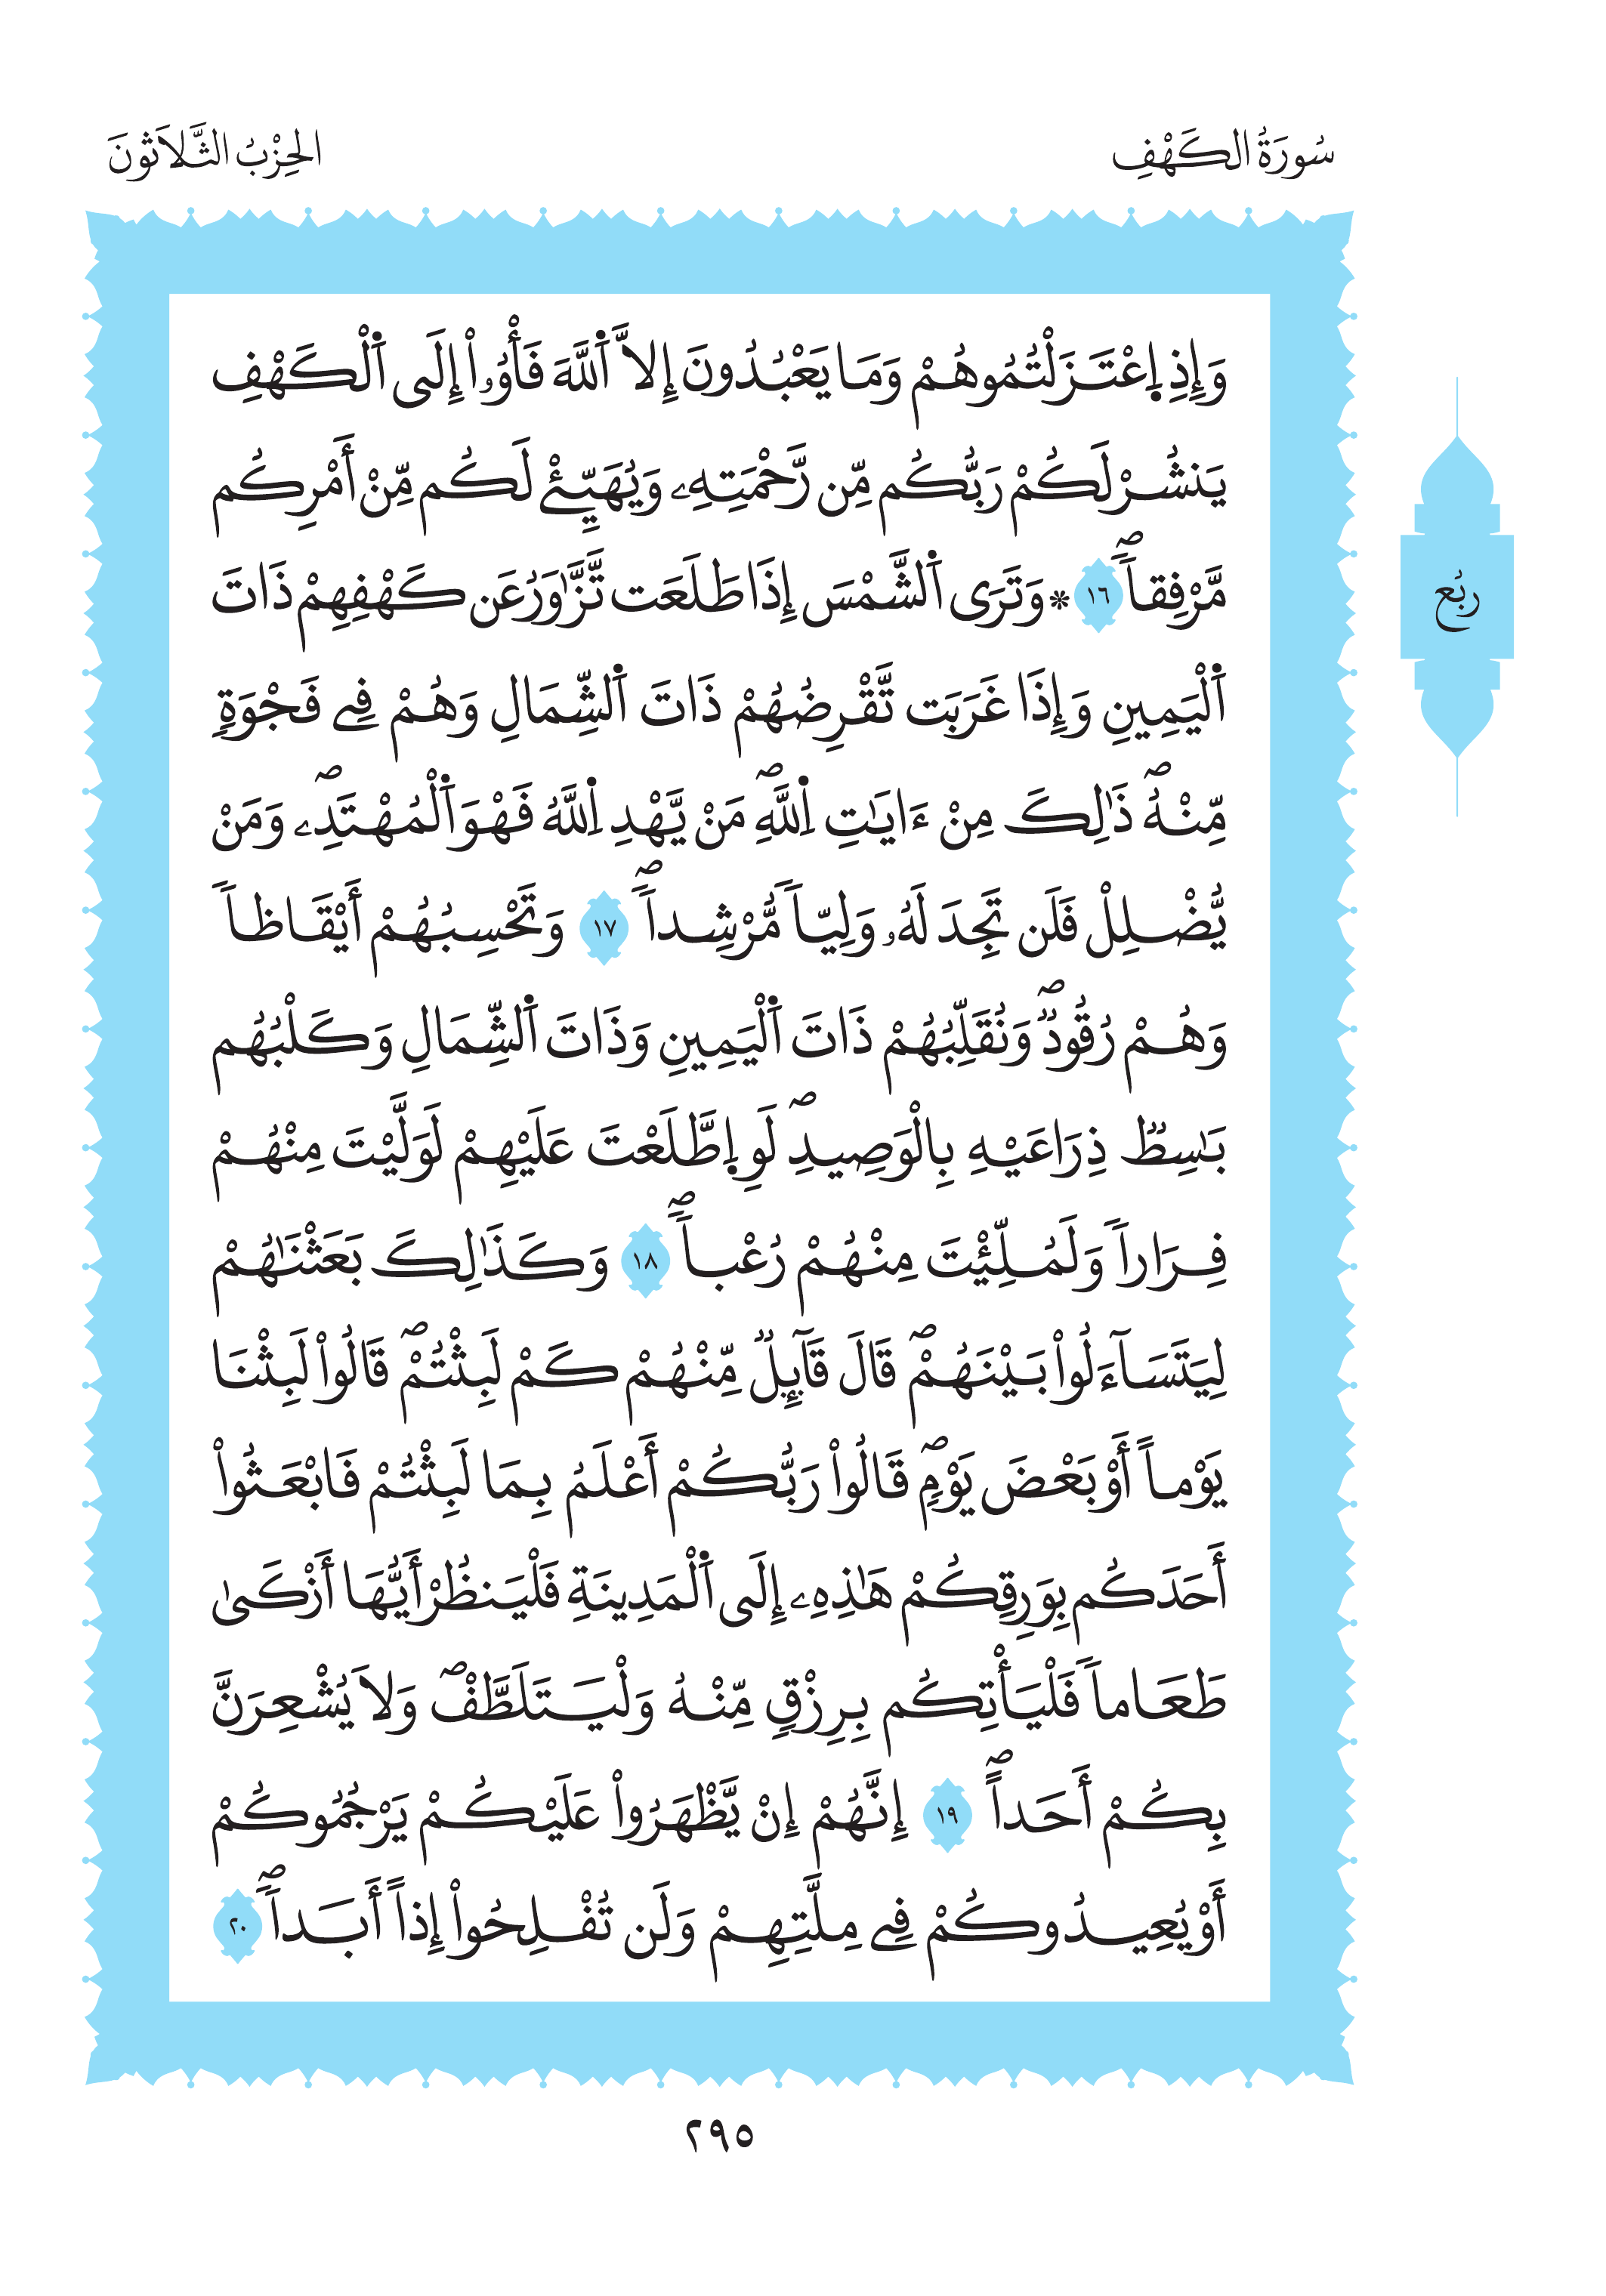 سُورَةُ الكَهْفِ
الحِزْبُ الثَّلَاثُونَ
وَإِذِ اِ۪عْتَزَلْتُمُوهُمْ وَمَا يَعْبُدُونَ إِلاَّ اَ۬للَّهَ فَأْوُۥٓاْ إِلَى اَ۬لْكَهْفِ
يَنشُرْ لَكُمْ رَبُّكُم مِّن رَّحْمَتِهِۦ وَيُهَيِّئْ لَكُم مِّنْ أَمْرِكُم
مَّرْفِقاٗۖ ١٦ * وَتَرَى اَ۬لشَّمْسَ إِذَا طَلَعَت تَّزَّٰوَرُ عَن كَهْفِهِمْ ذَاتَ
ربُع
اَ۬لْيَمِينِ وَإِذَا غَرَبَت تَّقْرِضُهُمْ ذَاتَ اَ۬لشِّمَالِ وَهُمْ فِے فَجْوَةٖ
مِّنْهُۖ ذَٰلِكَ مِنْ ءَايَٰتِ اِ۬للَّهِۖ مَنْ يَّهْدِ اِ۬للَّهُ فَهْوَ اَ۬لْمُهْتَدِۦۖ وَمَنْ
يُّضْلِلْ فَلَن تَجِدَ لَهُۥ وَلِيّاٗ مُّرْشِداٗۖ ١٧ وَتَحْسِبُهُمْ أَيْقَاظاٗ
وَهُمْ رُقُودٞۖ وَنُقَلِّبُهُمْ ذَاتَ اَ۬لْيَمِينِ وَذَاتَ اَ۬لشِّمَالِ وَكَلْبُهُم
بَٰسِطٞ ذِرَاعَيْهِ بِالْوَصِيدِۖ لَوِ اِ۪طَّلَعْتَ عَلَيْهِمْ لَوَلَّيْتَ مِنْهُمْ
فِرَاراٗ وَلَمُلِّئْتَ مِنْهُمْ رُعْباٗۖ ١٨ وَكَذَٰلِكَ بَعَثْنَٰهُمْ
لِيَتَسَآءَلُواْ بَيْنَهُمْۖ قَالَ قَآئِلٞ مِّنْهُمْ كَمْ لَبِثْتُمْۖ قَالُواْ لَبِثْنَا
يَوْماً أَوْ بَعْضَ يَوْمٖۖ قَالُواْ رَبُّكُمْ أَعْلَمُ بِمَا لَبِثْتُمْ فَابْعَثُواْ
أَحَدَكُم بِوَرِقِكُمْ هَٰذِهِۦ إِلَى اَ۬لْمَدِينَةِ فَلْيَنظُرْ أَيُّهَا أَزْكَىٰ
طَعَاماٗ فَلْيَأْتِكُم بِرِزْقٖ مِّنْهُ وَلْيَتَلَطَّفْۖ وَلَا يُشْعِرَنَّ
بِكُمْ أَحَداًۖ ١٩ إِنَّهُمْ إِنْ يَّظْهَرُواْ عَلَيْكُمْ يَرْجُمُوكُمْ
أَوْ يُعِيدُوكُمْ فِے مِلَّتِهِمْ وَلَن تُفْلِحُواْ إِذاً أَبَداٗۖ ٢٠
٢٩٥